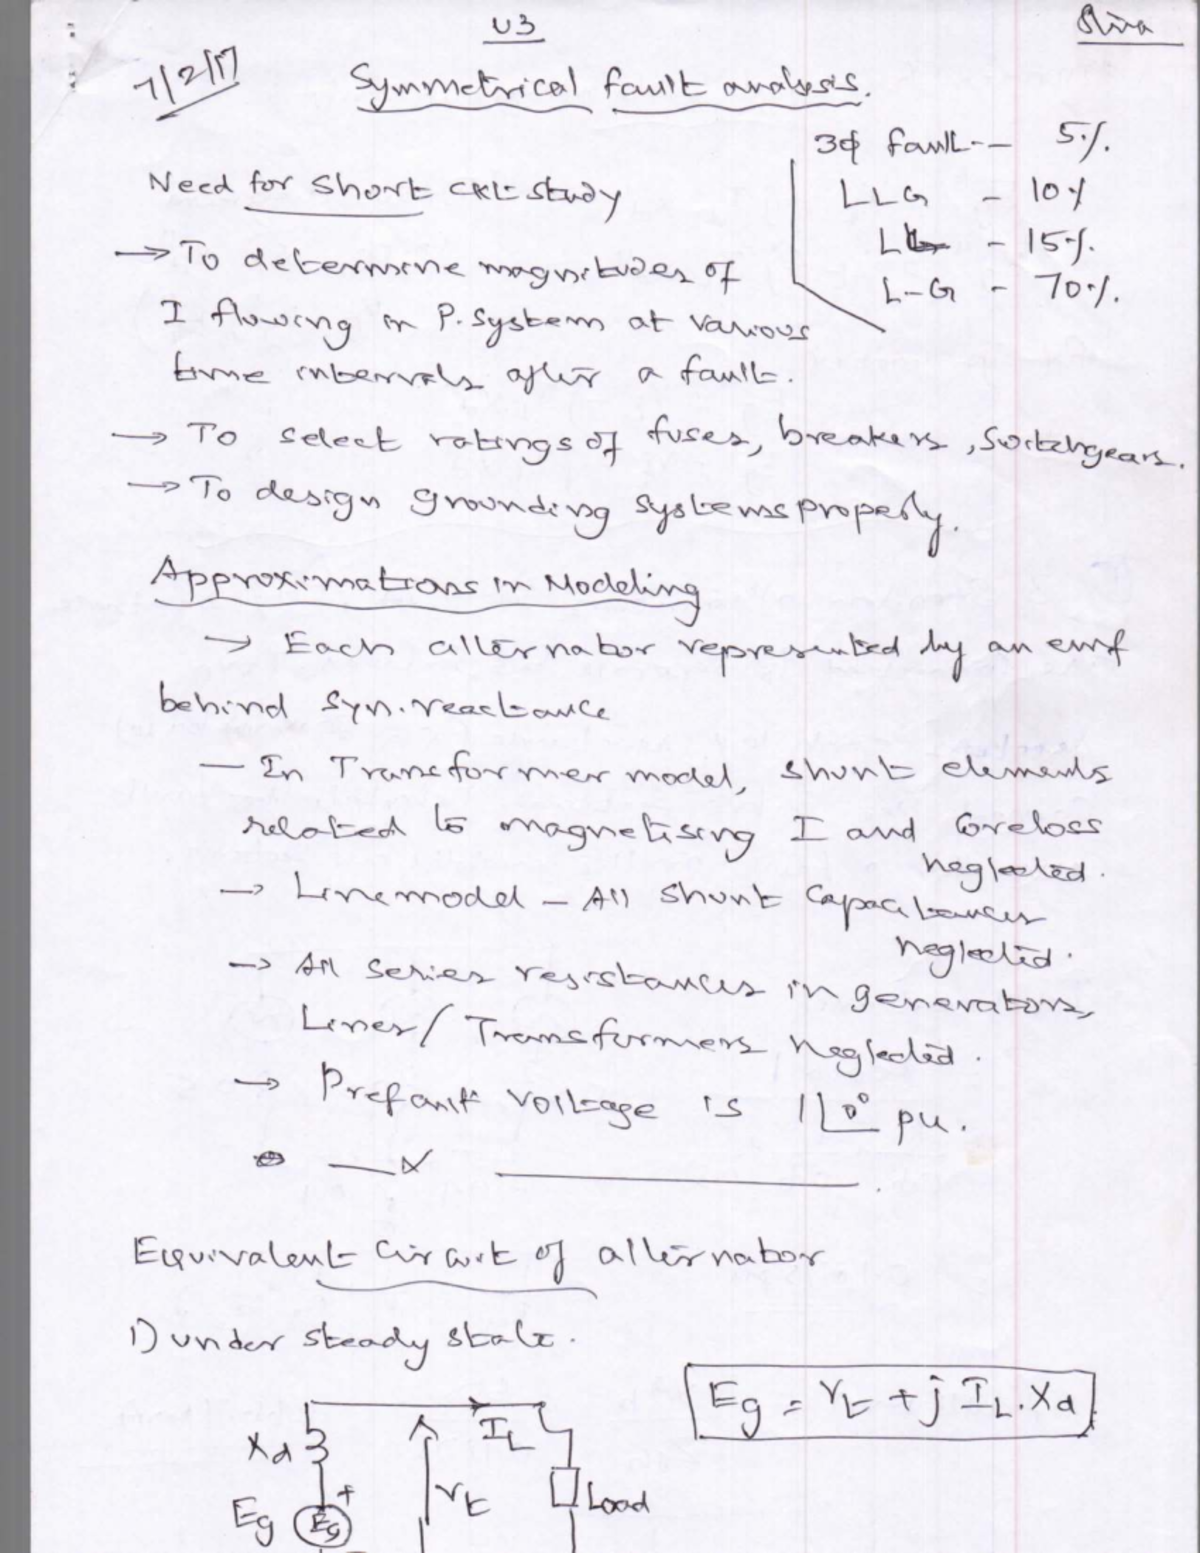 U3
Siva
7/2/17
Symmetrical fault analysis.
3ϕ fault -- 5%.
LLG - 10%
LL - 15%.
L-G - 70%.
Need for Short CKT study
→ To determine magnitudes of
I flowing in P. System at various
time intervals after a fault.
→ To select ratings of fuses, breakers, Switchgears.
→ To design grounding systems properly.
Approximations in Modeling
→ Each alternator represented by an emf
behind syn. reactance
— In Transformer model, shunt elements
related to magnetising I and Coreloss
neglected.
→ Line model - All shunt Capacitances
neglected.
→ All series resistances in generators,
Lines/Transformers neglected.
→ Prefault voltage is 1∠0° pu.
— x —
Equivalent Circuit of alternator
1) under steady state.
Eg = Vt + j IL. Xd
Xd
IL
+
Eg
Eg
Vt
Load